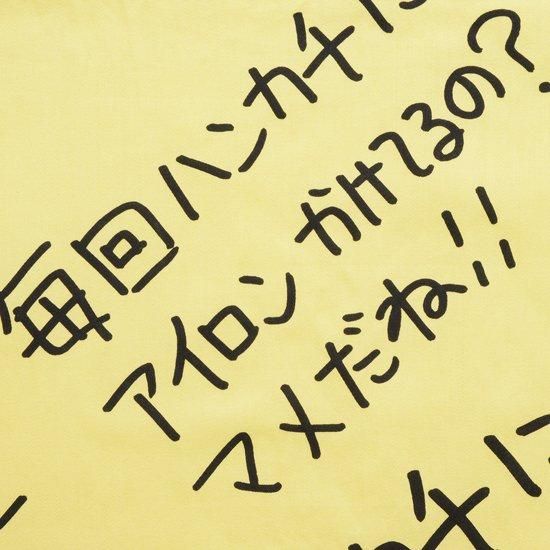 毎回ハンカチに
アイロンかけてるの?
マメだね!!
カチに